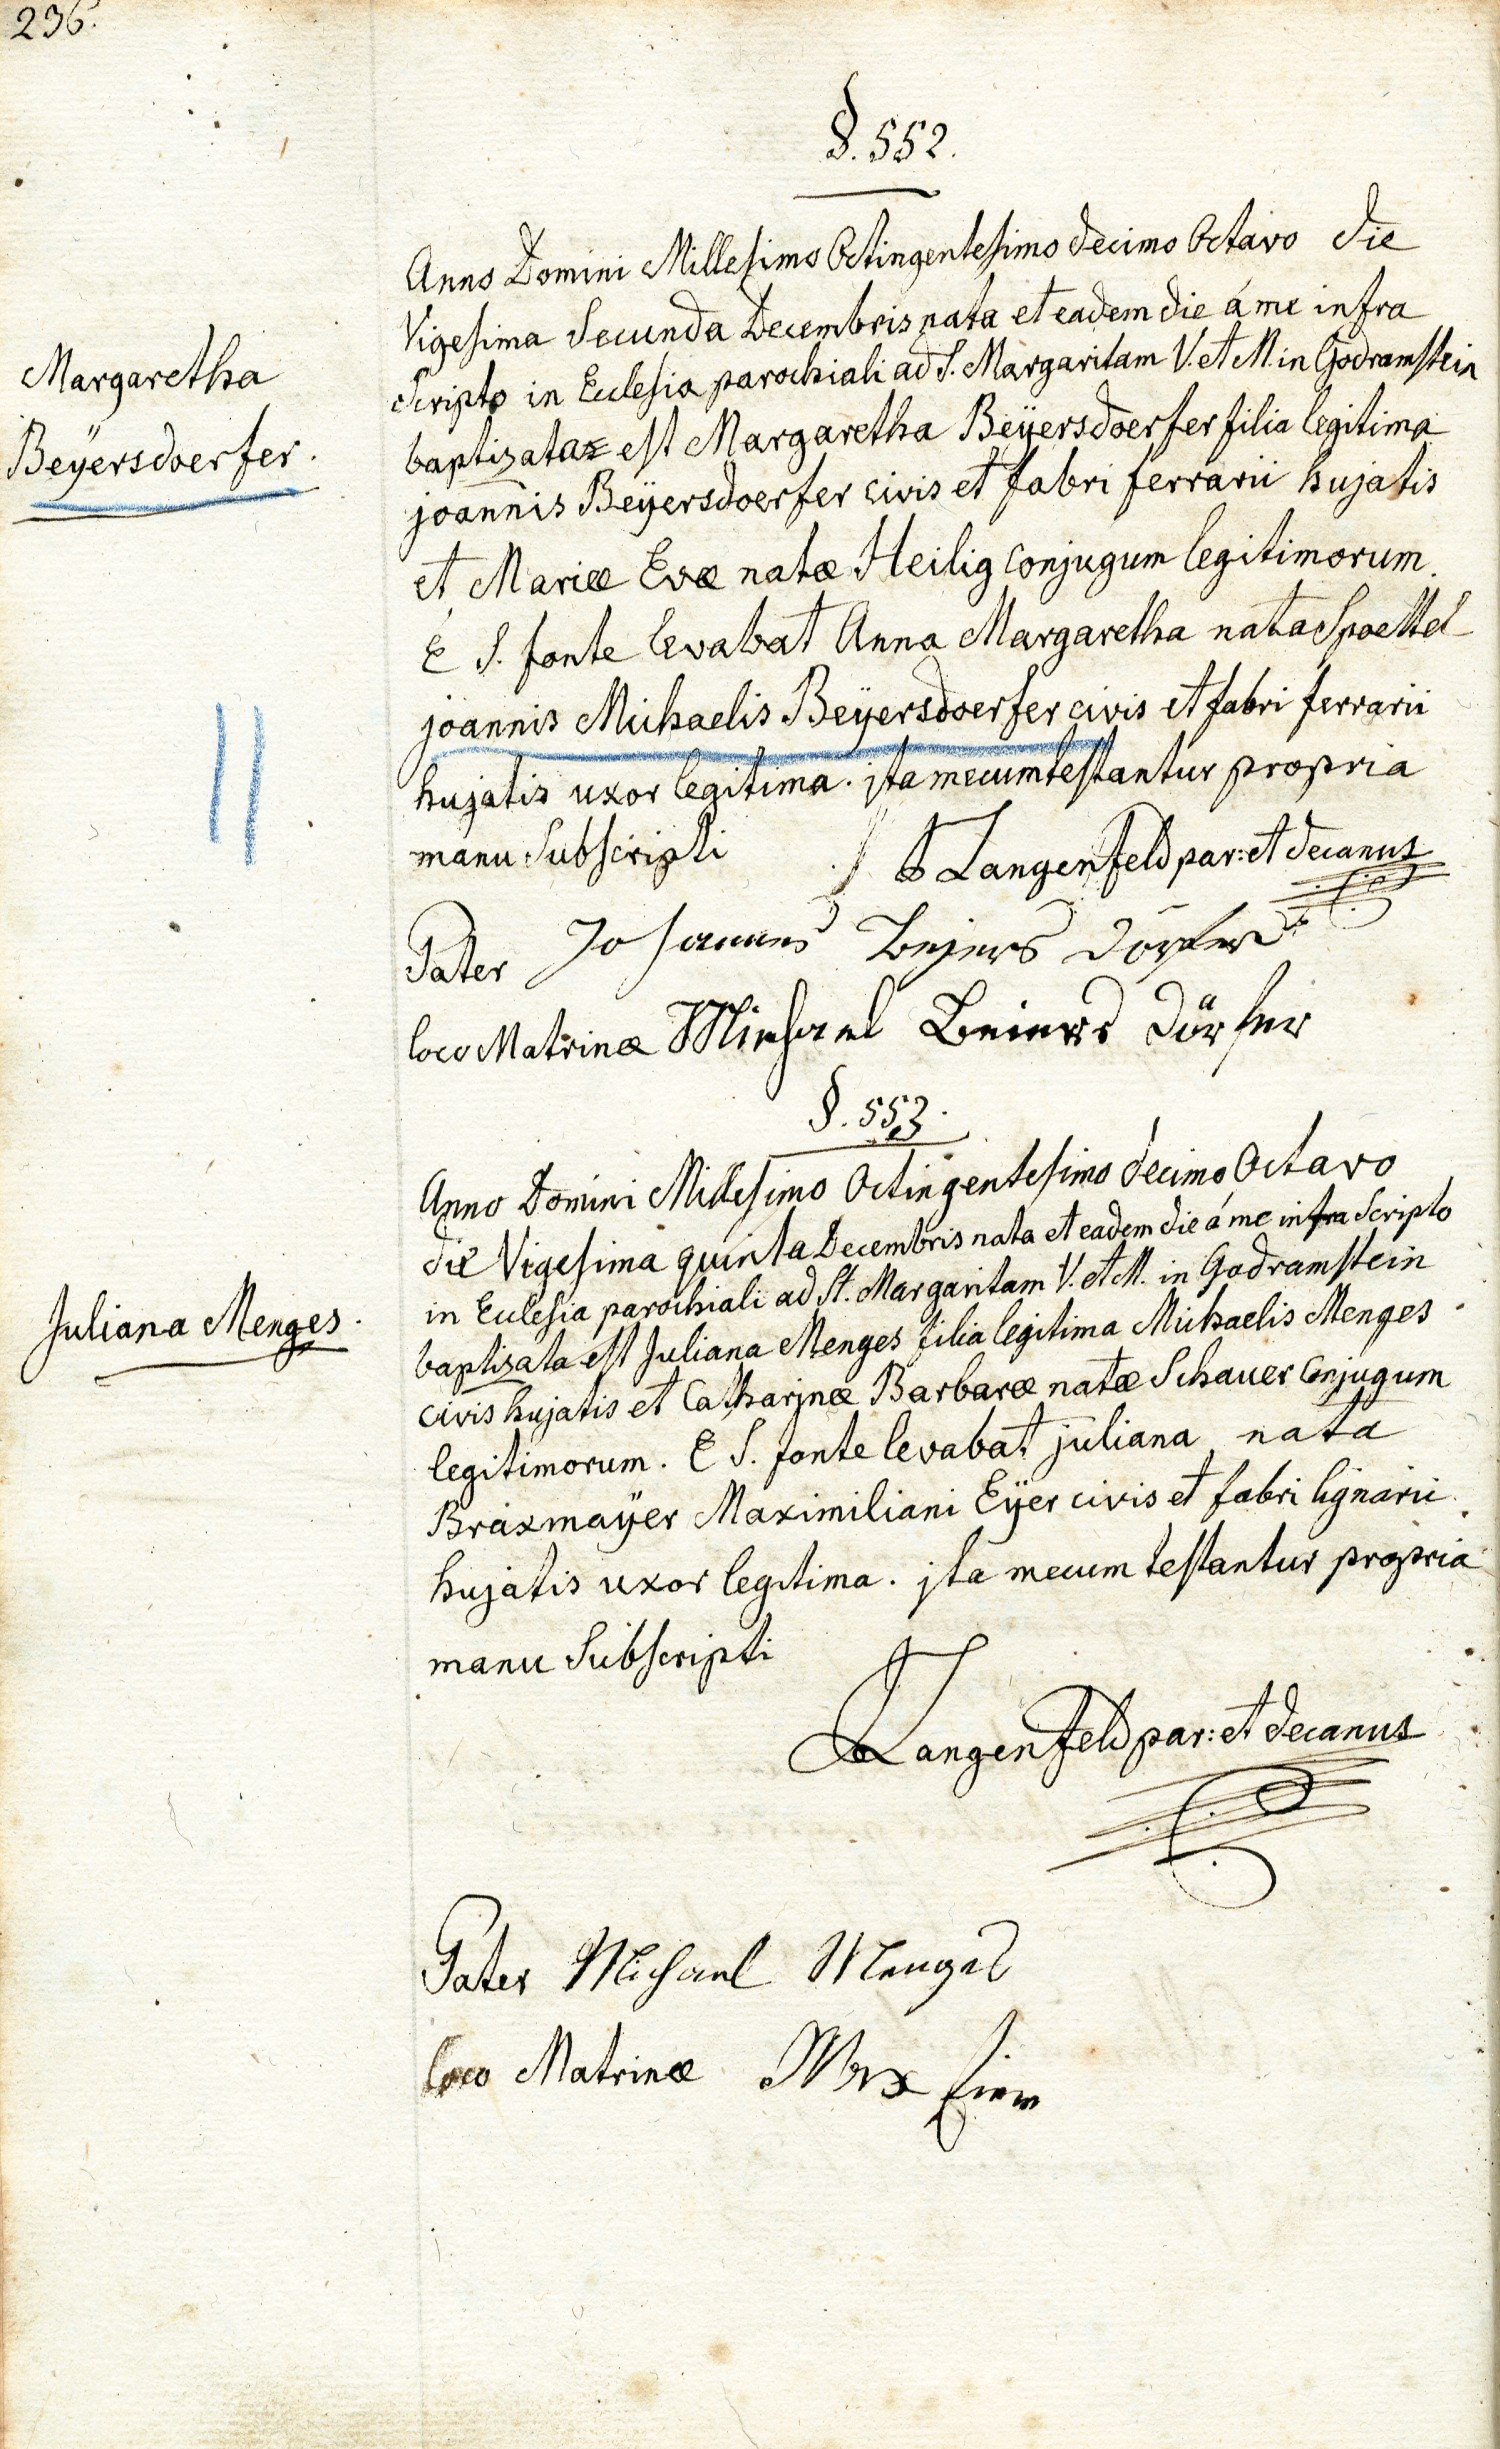 236.
§. 552.
Margaretha
Beÿersdoerfer.
Anno Domini Millesimo Octingentesimo decimo Octavo die
Vigesima Secunda Decembris nata et eadem die á me infra
Scripto in Ecclesia parochiali ad S. Margaritam V. et M. in Godramstein
baptizata est Margaretha Beÿersdoerfer filia legitima
joannis Beÿersdoerfer civis et fabri ferrarii hujatis
et Mariæ Evæ natæ Heilig Conjugum legitimorum.
E S. fonte levabat Anna Margaretha nata Spoettel
joannis Michaelis Beÿersdoerfer civis et fabri ferrarii
hujatis uxor legitima. jta mecum testantur propria
manu Subscripti
Langenfeld par: et decanus
Pater Johannes Bejers dörfer
loco Matrinæ Michael Beiers dörfer
§. 553.
Juliana Menges.
Anno Domini Millesimo Octingentesimo decimo Octavo
die Vigesima quinta Decembris nata et eadem die á me infra Scripto
in Ecclesia parochiali ad St. Margaritam V. et M. in Godramstein
baptizata est Juliana Menges filia legitima Michaelis Menges
civis hujatis et Catharjnæ Barbaræ natæ Schauer Conjugum
legitimorum. E S. fonte levabat juliana nata
Braxmaÿer Maximiliani Eÿer civis et fabri lignarii
hujatis uxor legitima. jta mecum testantur propria
manu Subscripti
Langenfeld par: et decanus
Pater Michael Menges
loco Matrinæ Max